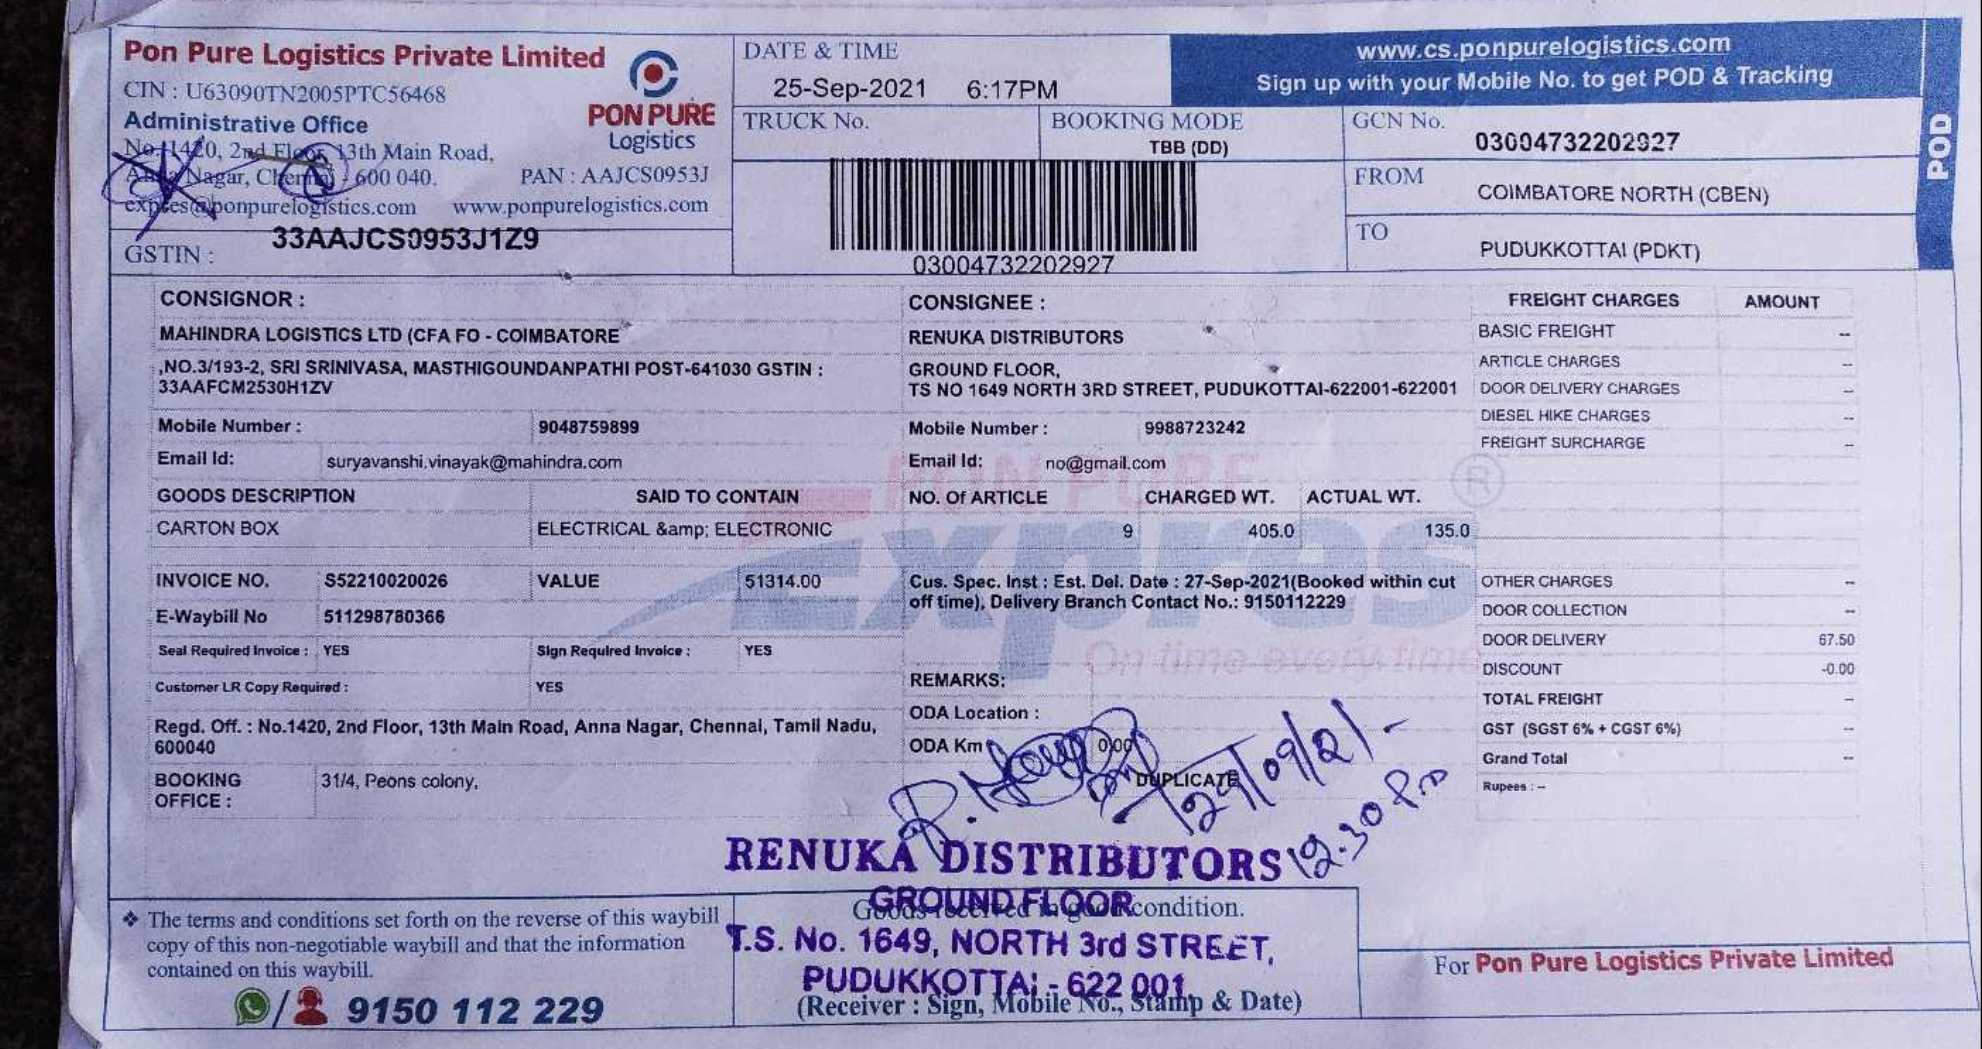 Pon Pure Logistics Private Limited
CIN : U63090TN2005PTC56468
Administrative Office
No. 1420, 2nd Floor, 13th Main Road,
Anna Nagar, Chennai 600 040.
PAN : AAJCS0953J
expres@ponpurelogistics.com www.ponpurelogistics.com
GSTIN : 33AAJCS0953J1Z9
PON PURE
Logistics
DATE & TIME
25-Sep-2021 6:17PM
www.cs.ponpurelogistics.com
Sign up with your Mobile No. to get POD & Tracking
POD
TRUCK No.
BOOKING MODE
TBB (DD)
GCN No.
03004732202927
FROM
COIMBATORE NORTH (CBEN)
TO
PUDUKKOTTAI (PDKT)
03004732202927
CONSIGNOR :
MAHINDRA LOGISTICS LTD (CFA FO - COIMBATORE
,NO.3/193-2, SRI SRINIVASA, MASTHIGOUNDANPATHI POST-641030 GSTIN :
33AAFCM2530H1ZV
Mobile Number : 9048759899
Email Id: suryavanshi.vinayak@mahindra.com
CONSIGNEE :
RENUKA DISTRIBUTORS
GROUND FLOOR,
TS NO 1649 NORTH 3RD STREET, PUDUKOTTAI-622001-622001
Mobile Number : 9988723242
Email Id: no@gmail.com
FREIGHT CHARGES AMOUNT
BASIC FREIGHT --
ARTICLE CHARGES --
DOOR DELIVERY CHARGES --
DIESEL HIKE CHARGES --
FREIGHT SURCHARGE --
GOODS DESCRIPTION SAID TO CONTAIN NO. Of ARTICLE CHARGED WT. ACTUAL WT.
CARTON BOX ELECTRICAL &amp; ELECTRONIC 9 405.0 135.0
PON PURE
Expres
®
On time every time
INVOICE NO. S52210020026 VALUE 51314.00
E-Waybill No 511298780366
Seal Required Invoice : YES Sign Required Invoice : YES
Customer LR Copy Required : YES
Regd. Off. : No.1420, 2nd Floor, 13th Main Road, Anna Nagar, Chennai, Tamil Nadu,
600040
BOOKING OFFICE : 31/4, Peons colony,
Cus. Spec. Inst : Est. Del. Date : 27-Sep-2021(Booked within cut
off time), Delivery Branch Contact No.: 9150112229
REMARKS:
ODA Location :
ODA Km 0.00
DUPLICATE
29/09/21
12.30 P.M
OTHER CHARGES --
DOOR COLLECTION --
DOOR DELIVERY 67.50
DISCOUNT -0.00
TOTAL FREIGHT --
GST (SGST 6% + CGST 6%) --
Grand Total --
Rupees : --
RENUKA DISTRIBUTORS
GROUND FLOOR
T.S. No. 1649, NORTH 3rd STREET,
PUDUKKOTTAI - 622 001.
Goods received in good condition.
(Receiver : Sign, Mobile No., Stamp & Date)
❖ The terms and conditions set forth on the reverse of this waybill
copy of this non-negotiable waybill and that the information
contained on this waybill.
9150 112 229
For Pon Pure Logistics Private Limited